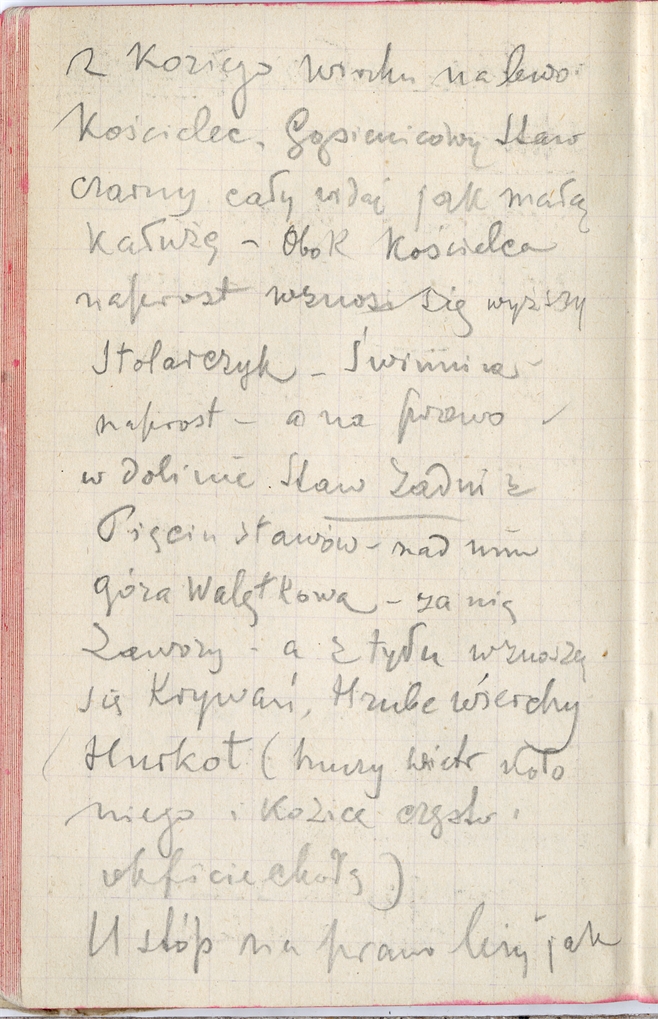 Z Koziego wirchu na lewo
Kościelec, Gąsienicowy Staw
czarny cały widać jak małą
Kałużę – Obok Kościelca
naprost wznosi się wyższy
Stolarczyk – Świnnica –
naprost – a na prawo
w dolinie Staw Zadni z
Pięciu stawów – nad nim
góra Walętkowa – za nią
Zawory – a z tyłu wznoszą
się Krywań, Hrube wierchy
Hurkot (huczy wiatr koło
niego i Kozice często
chodzą)
U stóp na prawo leży jak